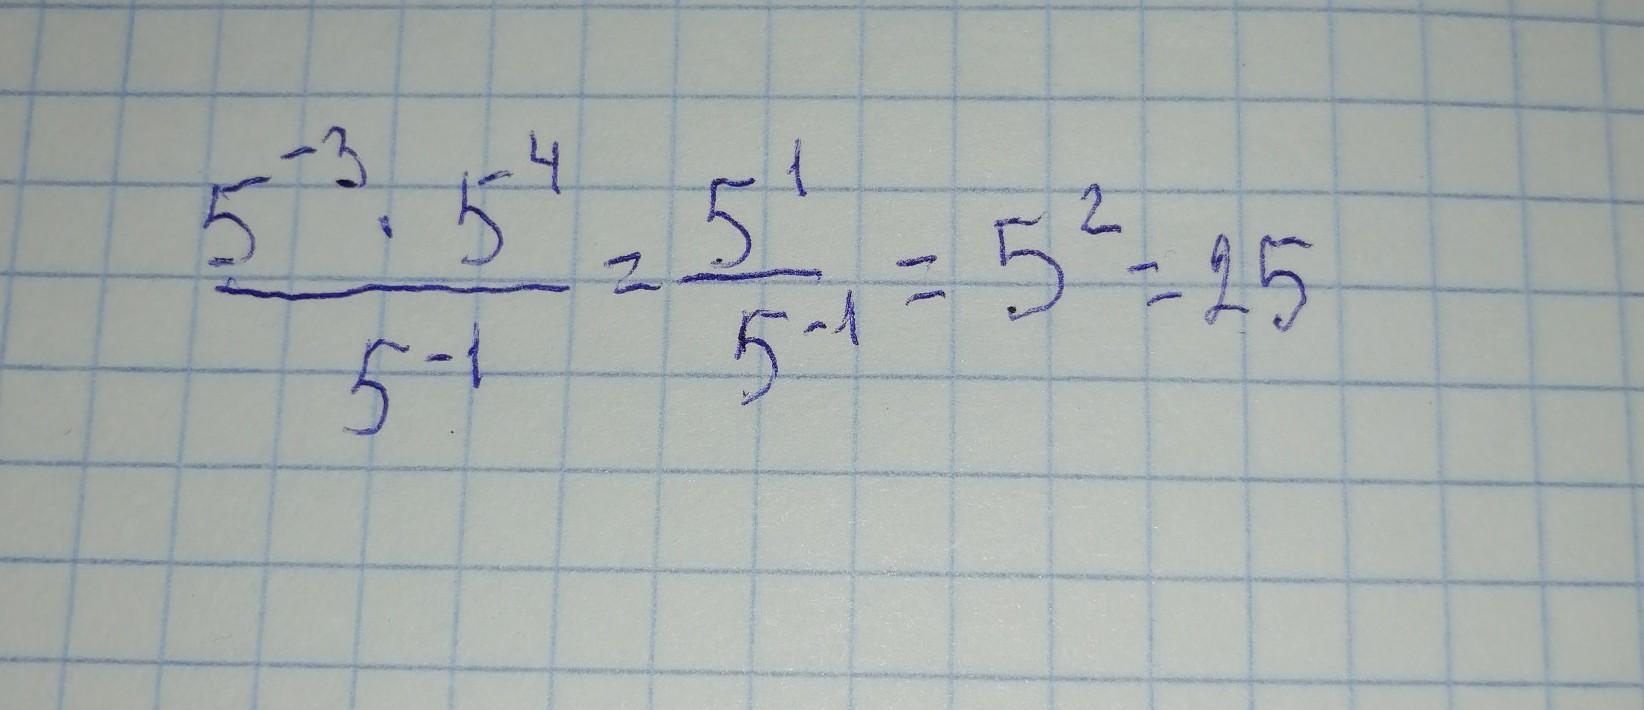 5⁻³ · 5⁴ / 5⁻¹ = 5¹ / 5⁻¹ = 5² = 25